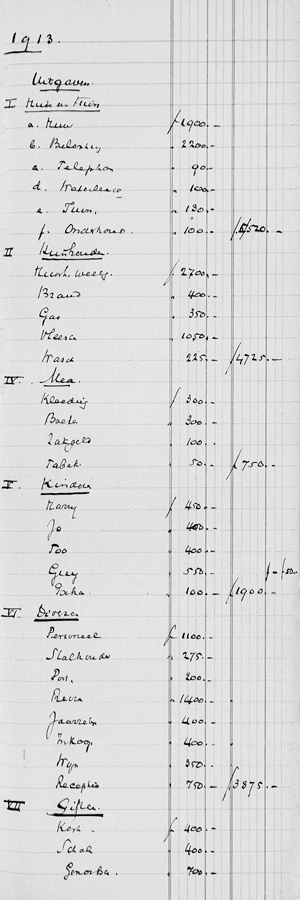 1913.
Uitgaven.
I. Huis en Tuin
a. Huur ƒ 1900.-
b. Belasting „ 2200.-
a. Telephon „ 90.-
d. „ 100.-
e. Tuin. „ 130.-
f. Onderhoud. „ 100.- ƒ 4520.-
II Huishouden.
Huish. weekg. ƒ 2700.-
Brand „ 400.-
Gas „ 350.-
Vleesch „ 1050.-
Wasch „ 225.- ƒ 4725.-
IV. Mea.
Kleeding ƒ 300.-
„ 300.-
Zakgeld „ 100.-
Tabak „ 50.- ƒ 750.-
V. Kinderen
Harry ƒ 450.-
Jo „ 400.-
Too „ 400.-
Guy „ 550.-
„ 100.- ƒ 1900.-
VI. Diversen
Personeel ƒ 1100.-
Stalhouder „ 275.-
Port. „ 200.-
Reizen „ 1400.-
„ 400.-
Inkoop „ 400.-
Wijn „ 350.-
Recepties „ 750.- ƒ 3875.-
VII Giften.
Kerk. ƒ 400.-
„ 400.-
„ 700.-